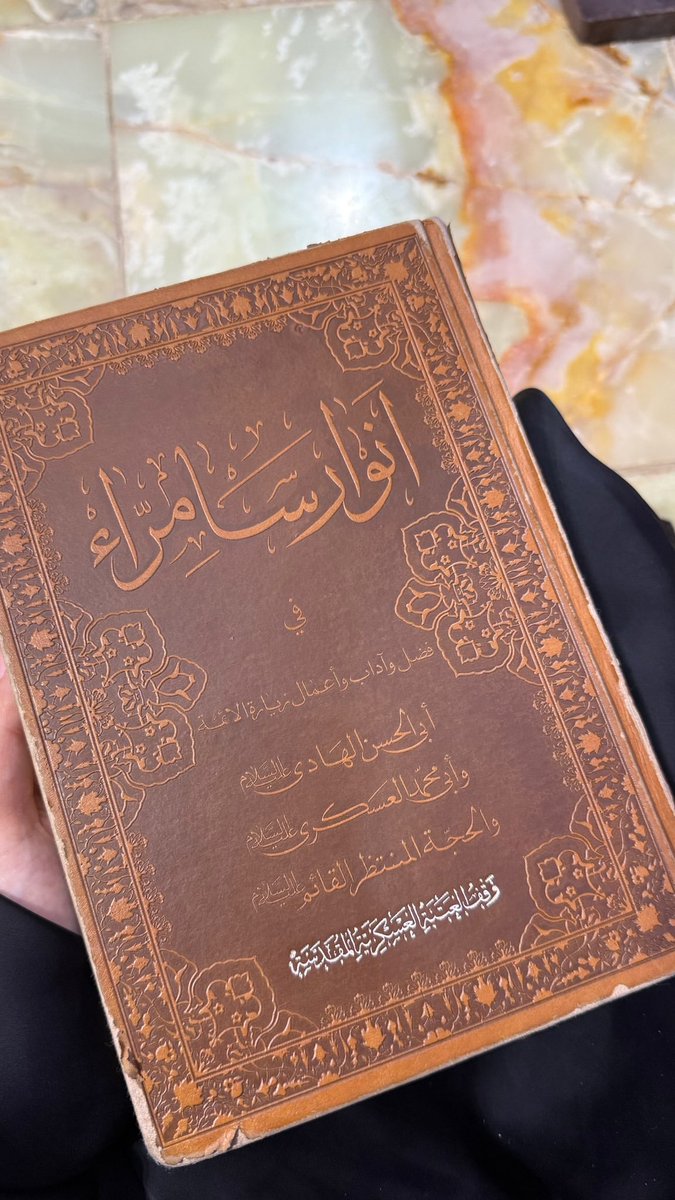 أنوار سامرّاء
في
فضل وآداب وأعمال زيارة الائمة
أبي الحسن الهادي عليه السلام
وأبي محمد العسكري عليه السلام
والحجة المنتظر القائم عليه السلام
وقف العتبة العسكرية المقدسة